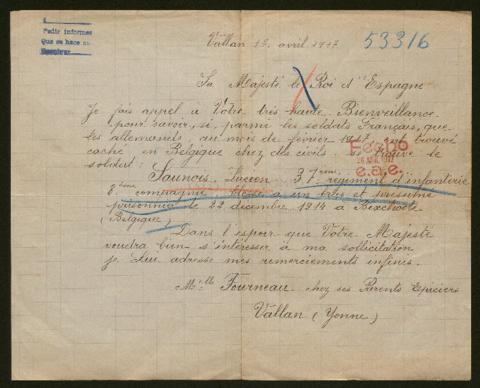 Pedir informes
Que se hace en
Vallan 12 avril 1917
53316
Sa Majesté le Roi d'Espagne
Je fais appel à Votre très haute Bienveillance
pour savoir, si, parmi les soldats Français, que
les allemands, au mois de février 1917 ont trouvé
caché en Belgique chez des civils se trouve le
soldat: Saunois, Lucien 37ème régiment d'infanterie
8ème compagnie et présumé
prisonnier le 22 décembre 1914 à Bixchoote
(Belgique)
Fecho
e.a.e.
Dans l'espoir que Votre Majesté
voudra bien s'intéresser à ma sollicitation
je lui adresse mes remerciements infinis.
Melle Fourneau chez ses Parents Epiciers
Vallan (Yonne)